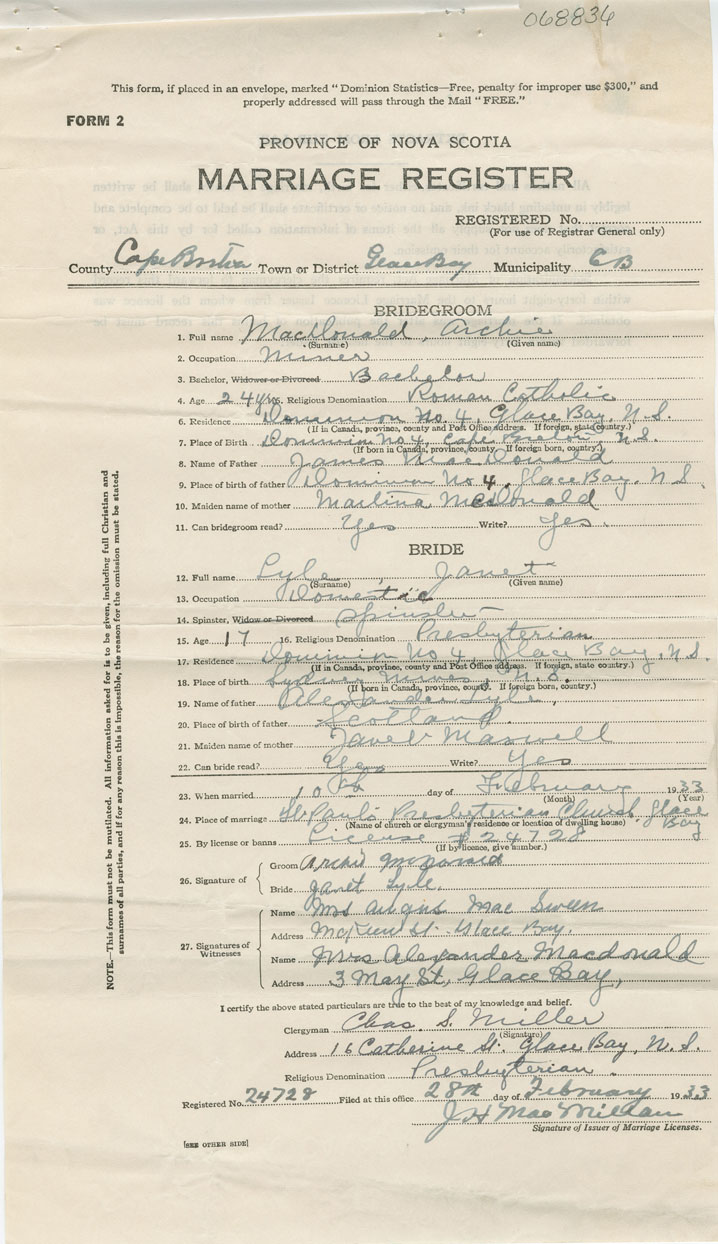 068834
This form, if placed in an envelope, marked "Dominion Statistics—Free, penalty for improper use $300," and
properly addressed will pass through the Mail "FREE."
FORM 2
PROVINCE OF NOVA SCOTIA
MARRIAGE REGISTER
REGISTERED No.
(For use of Registrar General only)
County Cape Breton Town or District Glace Bay Municipality C B
BRIDEGROOM
1. Full name MacDonald, Archie
(Surname) (Given name)
2. Occupation Miner
3. Bachelor, Widower or Divorced Bachelor
4. Age 24 yrs. Religious Denomination Roman Catholic
6. Residence Dominion No. 4, Glace Bay, N.S.
(If in Canada, province, county and Post Office address. If foreign, state country.)
7. Place of Birth Dominion No 4, Cape Breton, N.S.
(If born in Canada, province, county. If foreign born, country.)
8. Name of Father James MacDonald
9. Place of birth of father Dominion No 4, Glace Bay, N.S.
10. Maiden name of mother Martina McDonald
11. Can bridegroom read? Yes Write? Yes
BRIDE
12. Full name Lyle, Janet
(Surname) (Given name)
13. Occupation Domestic
14. Spinster, Widow or Divorced Spinster
15. Age 17 16. Religious Denomination Presbyterian
17. Residence Dominion No 4, Glace Bay, N.S.
(If in Canada, province, county and Post Office address. If foreign, state country.)
18. Place of birth Sydney Mines, N.S.
(If born in Canada, province, county. If foreign born, country.)
19. Name of father Alexander Lyle,
20. Place of birth of father Scotland.
21. Maiden name of mother Janet Maxwell
22. Can bride read? Yes Write? Yes
23. When married 10th day of February 1933
(Month) (Year)
24. Place of marriage St. Paul's Presbyterian Church, Glace Bay
(Name of church or clergyman's residence or location of dwelling house)
25. By license or banns License # 24728
(If by licence, give number.)
26. Signature of Groom Archie McDonald
Bride Janet Lyle.
27. Signatures of Witnesses
Name Mrs Angus Mac Sween
Address St. Glace Bay.
Name Mrs Alexander Macdonald
Address 3 May St, Glace Bay,
I certify the above stated particulars are true to the best of my knowledge and belief.
Clergyman Chas. S. Miller
(Signature)
Address 16 Catherine St. Glace Bay, N.S.
Religious Denomination Presbyterian.
Registered No. 24728 Filed at this office 28th day of February 1933
J H MacMillan
Signature of Issuer of Marriage Licenses.
[SEE OTHER SIDE]
NOTE.—This form must not be mutilated. All information asked for is to be given, including full Christian and
surnames of all parties, and if for any reason this is impossible, the reason for the omission must be stated.